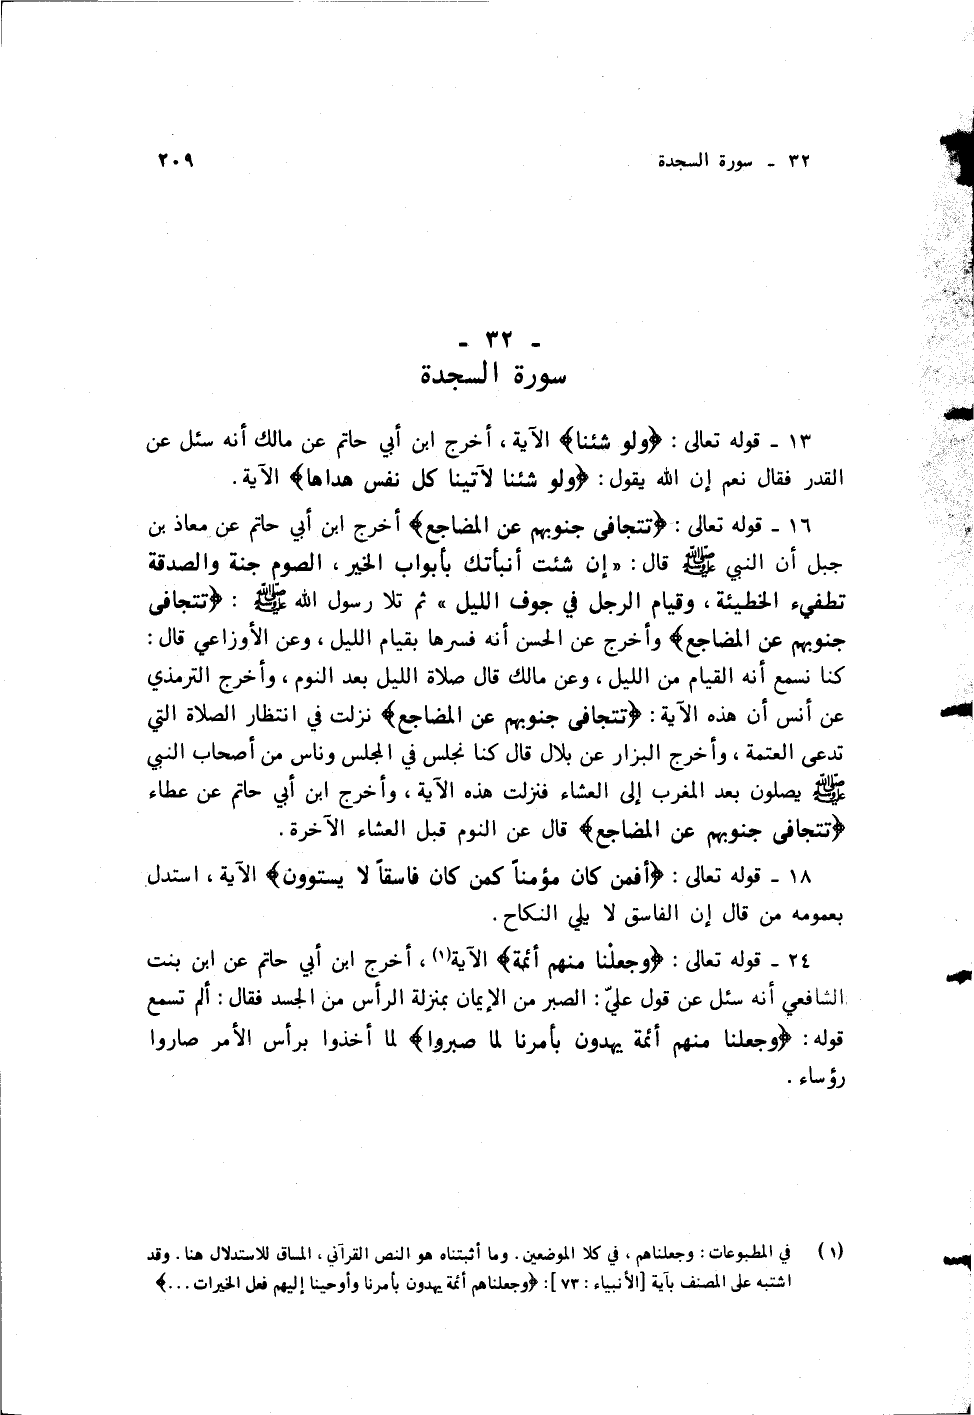 ٣٢ ـ سورة السجدة ٢٠٩
ـ ٣٢ ـ
سورة السجدة
١٣ ـ قوله تعالى : ﴿ولو شئنا﴾ الآية ، أخرج ابن أبي حاتم عن مالك أنه سئل عن
القدر فقال نعم إن الله يقول : ﴿ولو شئنا لآتينا كل نفس هداها﴾ الآية .
١٦ ـ قوله تعالى : ﴿تتجافى جنوبهم عن المضاجع﴾ أخرج ابن أبي حاتم عن معاذ بن
جبل أن النبي ﷺ قال : « إن شئت أنبأتك بأبواب الخير ، الصوم جنة والصدقة
تطفيء الخطيئة ، وقيام الرجل في جوف الليل » ثم تلا رسول الله ﷺ : ﴿تتجافى
جنوبهم عن المضاجع﴾ وأخرج عن الحسن أنه فسرها بقيام الليل ، وعن الأوزاعي قال :
كنا نسمع أنه القيام من الليل ، وعن مالك قال صلاة الليل بعد النوم ، وأخرج الترمذي
عن أنس أن هذه الآية : ﴿تتجافى جنوبهم عن المضاجع﴾ نزلت في انتظار الصلاة التي
تدعى العتمة ، وأخرج البزار عن بلال قال كنا نجلس في المجلس وناس من أصحاب النبي
ﷺ يصلون بعد المغرب إلى العشاء فنزلت هذه الآية ، وأخرج ابن أبي حاتم عن عطاء
﴿تتجافى جنوبهم عن المضاجع﴾ قال عن النوم قبل العشاء الآخرة .
١٨ ـ قوله تعالى : ﴿أفمن كان مؤمناً كمن كان فاسقاً لا يستوون﴾ الآية ، استدل
بعمومه من قال إن الفاسق لا يلي النكاح .
٢٤ ـ قوله تعالى : ﴿وجعلْنا منهم أئمة﴾ الآية(١) ، أخرج ابن أبي حاتم عن ابن بنت
الشافعي أنه سئل عن قول عليّ : الصبر من الإيمان بمنزلة الرأس من الجسد فقال : ألم تسمع
قوله : ﴿وجعلنا منهم أئمة يهدون بأمرنا لما صبروا﴾ لما أخذوا برأس الأمر صاروا
رؤساء .
(١) في المطبوعات : وجعلناهم ، في كلا الموضعين . وما أثبتناه هو النص القرآني ، المساق للاستدلال هنا . وقد
اشتبه على المصنف بآية [الأنبياء : ٧٣] : ﴿وجعلناهم أئمة يهدون بأمرنا وأوحينا إليهم فعل الخيرات . . .﴾